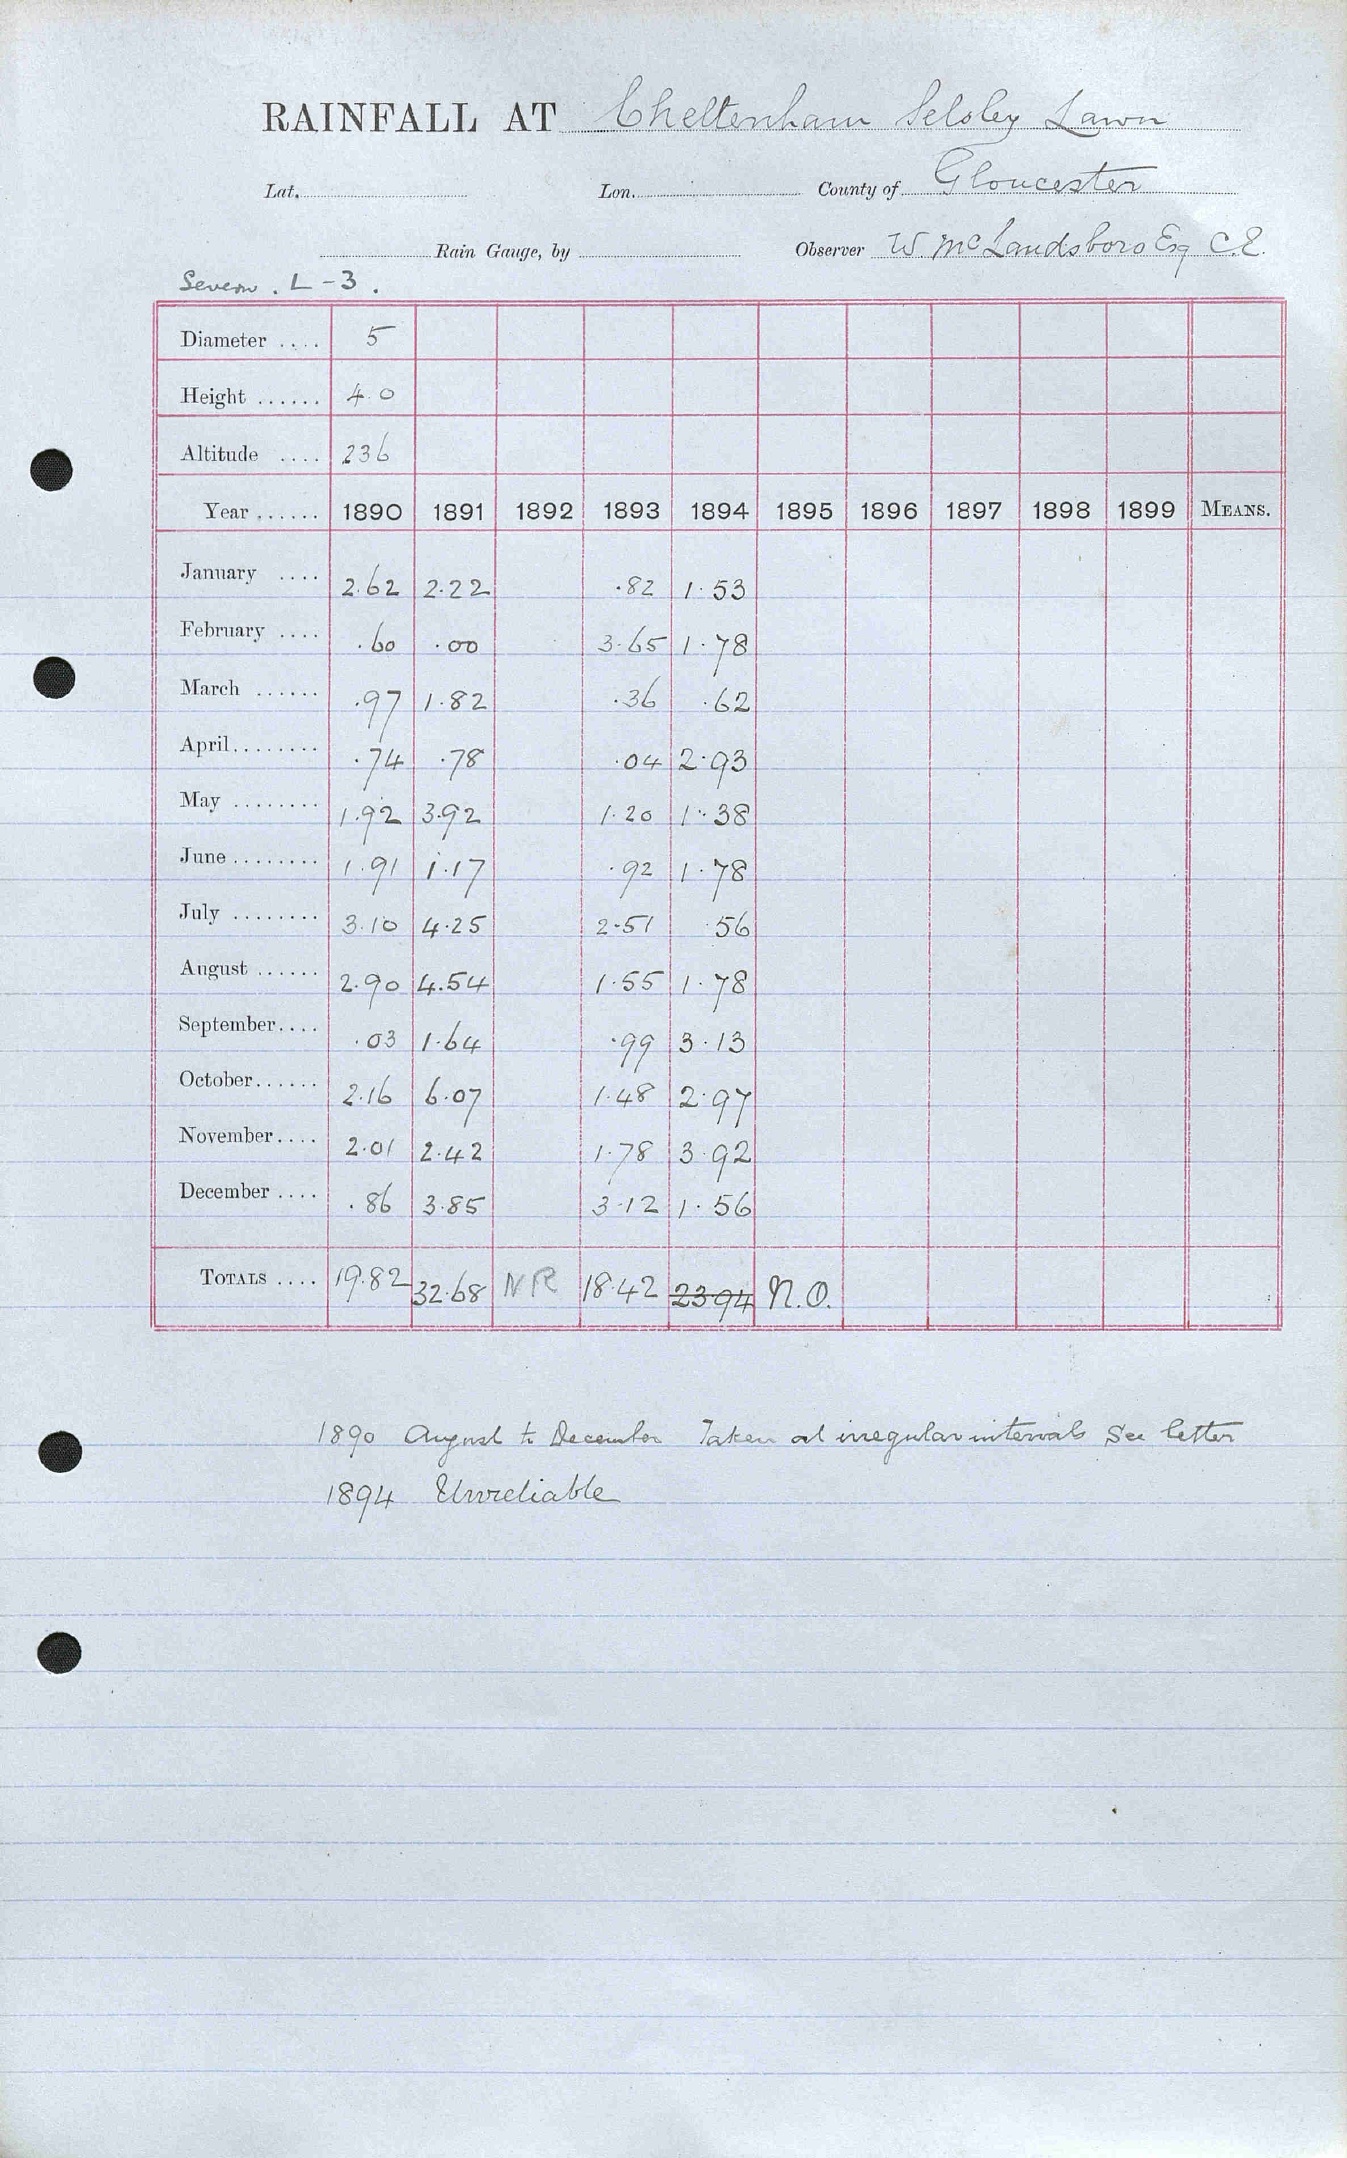 RAINFALL AT Cheltenham Selsley Lawn
Lat. Lon. County of Gloucester
Rain Gauge, by Observer W. McLandsboro Esq C.E.
Severn . L - 3 .
Diameter .... 5
Height ...... 4 0
Altitude .... 236
Year ...... 1890 1891 1892 1893 1894 1895 1896 1897 1898 1899 MEANS.
January .... 2.62 2.22 .82 1.53
February .... .60 .00 3.65 1.78
March ...... .97 1.82 .36 .62
April........ .74 .78 .04 2.93
May ........ 1.92 3.92 1.20 1.38
June ........ 1.91 1.17 .92 1.78
July ........ 3.10 4.25 2.51 56
August ...... 2.90 4.54 1.55 1.78
September.... .03 1.64 .99 3.13
October...... 2.16 6.07 1.48 2.97
November.... 2.01 2.42 1.78 3.92
December .... .86 3.85 3.12 1.56
TOTALS .... 19.82 32.68 NR 18.42 23 94 N.O.
1890 August to December Taken at irregular intervals See letter
1894 Unreliable